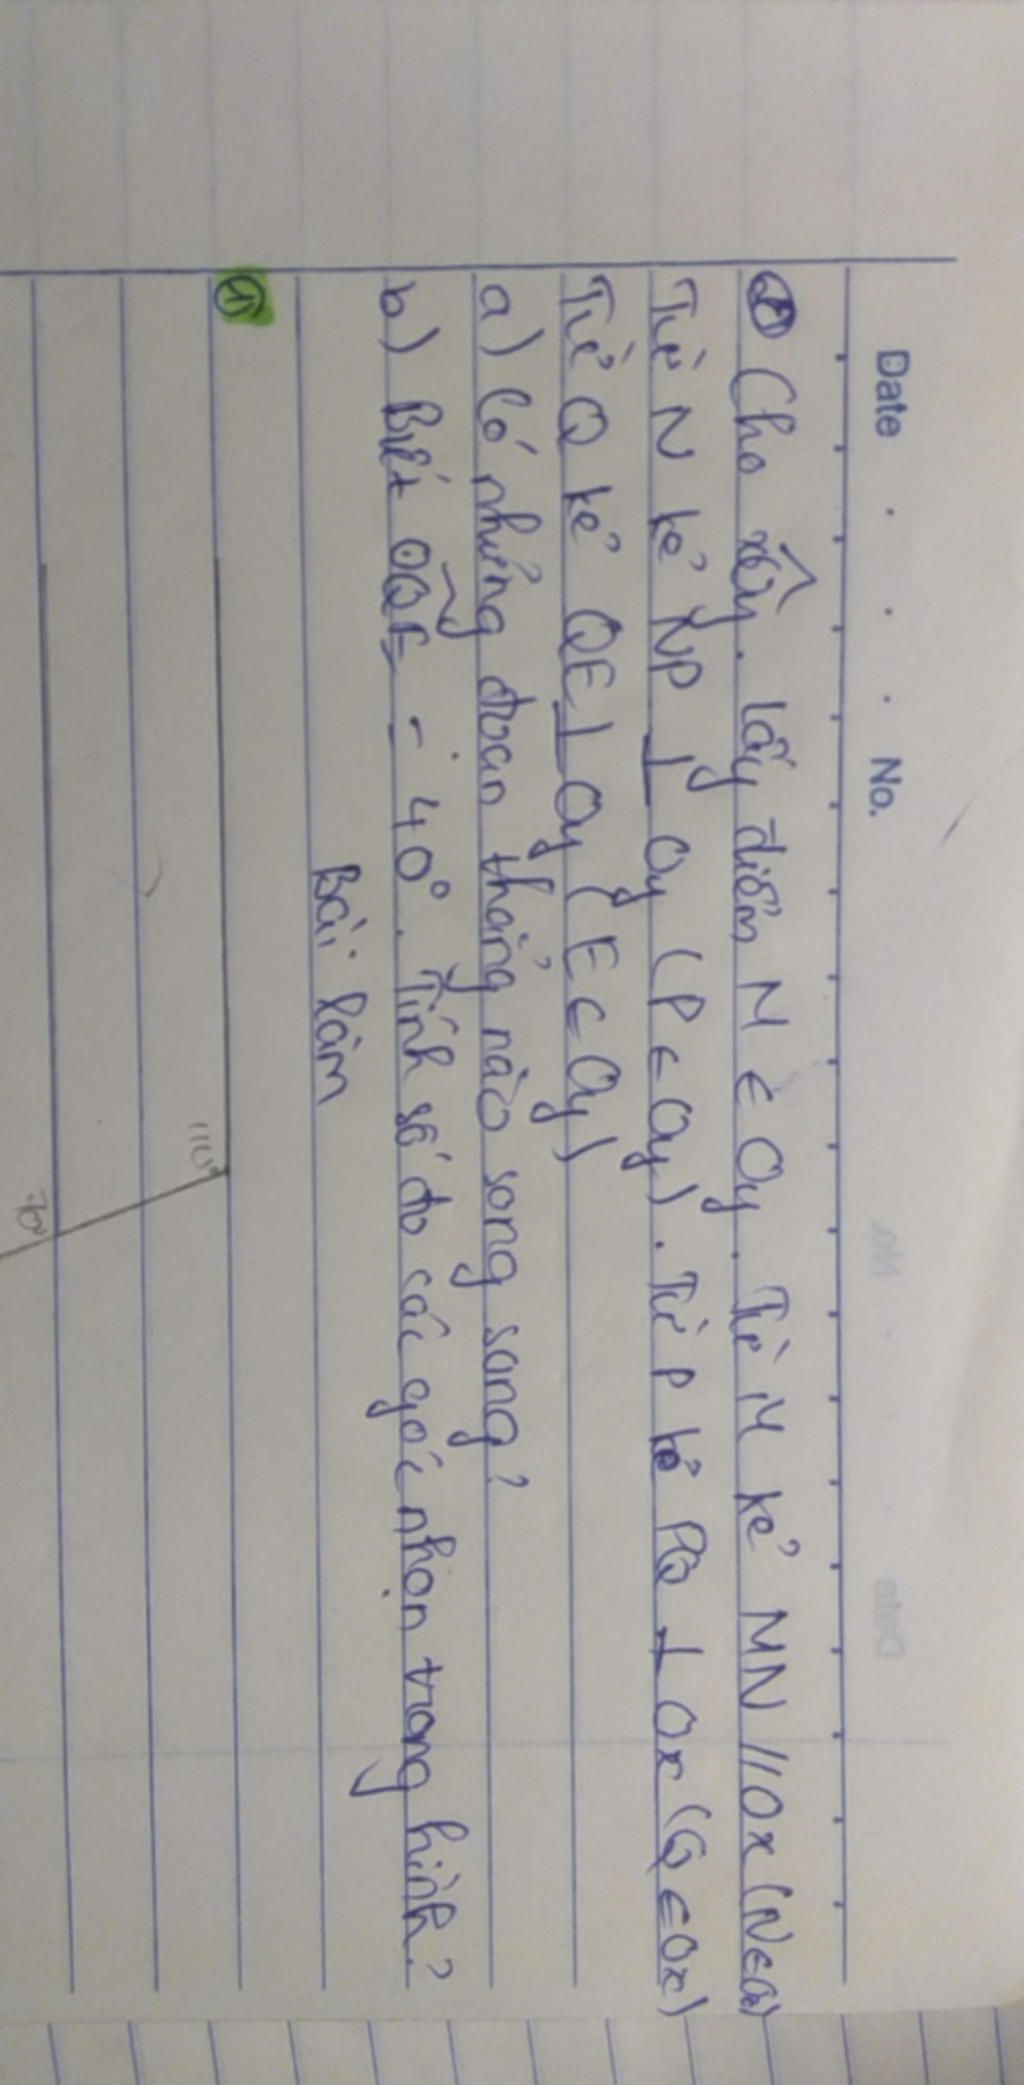 Date . . . No.
Cho xOy. lấy điểm M ∈ Oy. Từ M kẻ MN //Ox (N∈Ox)
Từ N kẻ NP ⊥ Oy (P ∈ Oy). Từ P kẻ PQ ⊥ Ox (Q ∈ Ox)
Từ Q kẻ QE ⊥ Oy (E ∈ Oy)
a) Có những đoạn thẳng nào song song?
b) Biết OQE = 40°. Tính số đo các góc nhọn trong hình?
Bài làm
①
110°
70°